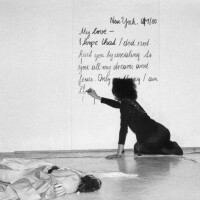 New York.
My love —
I hope that I did not
hurt you by vanishing. As
you all my dreams and
fears. Only
I am